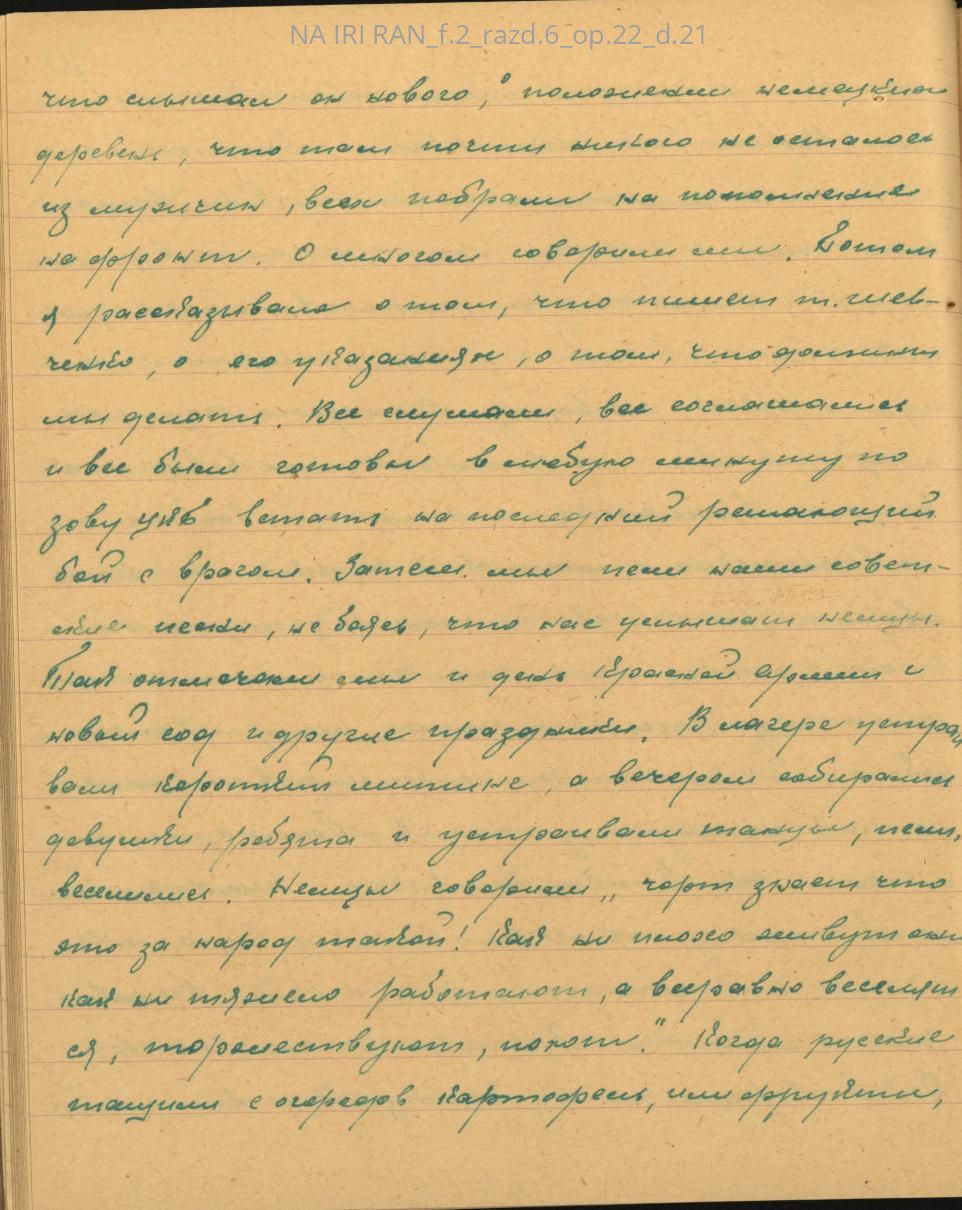 NA IRI RAN_f.2_razd.6_op.22_d.21
что слышал он нового, о положении немецкой
деревень, что там почти никого не осталось
из мужчин, всех побрали на пополнение
на фронт. О многом говорили мы. Потом
я рассказывала о том, что пишет т. Шев-
ченко, о его указаниях, о том, что должны
мы делать. Все слушали, все соглашались
и все были готовы в любую минуту по
зову ЦКБ встать на последний решающий
бой с врагом. Затем мы пели наши совет-
ские песни, не боясь, что нас услышат немцы.
Так отмечали мы и день Красной Армии и
новый год и другие праздники. В лагере устраи
вали короткий митинг, а вечером собирались
девушки, ребята и устраивали танцы, пели,
веселились. Немцы говорили „чорт знает что
это за народ такой! Как ни плохо живут они
как ни тяжело работают, а всеравно веселят
ся, торжествуют, поют." Когда русские
тащили с огородов картофель, или фрукты,